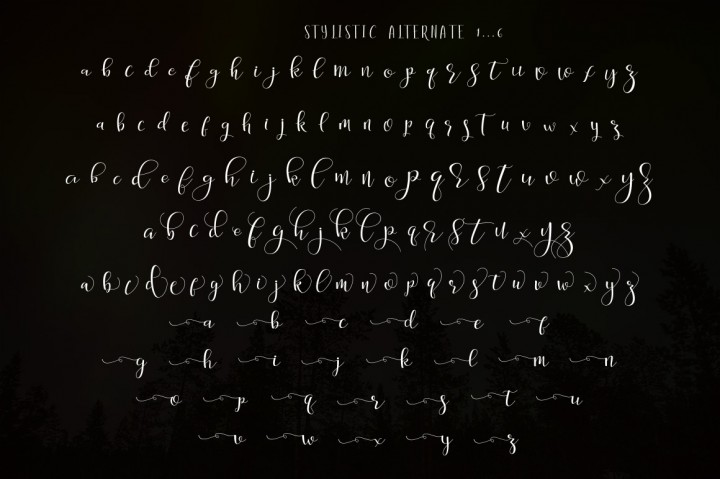 STYLISTIC ALTERNATE 1...6
a b c d e f g h i j k l m n o p q r s t u v w x y z
a b c d e f g h i j k l m n o p q r s t u v w x y z
a b c d e f g h i j k l m n o p q r s t u v w x y z
a b c d e f g h j k l p q r s t u x y z
a b c d e f g h i j k l m n o p q r s t u v w x y z
a b c d e f
g h i j k l m n
o p q r s t u
v w x y z